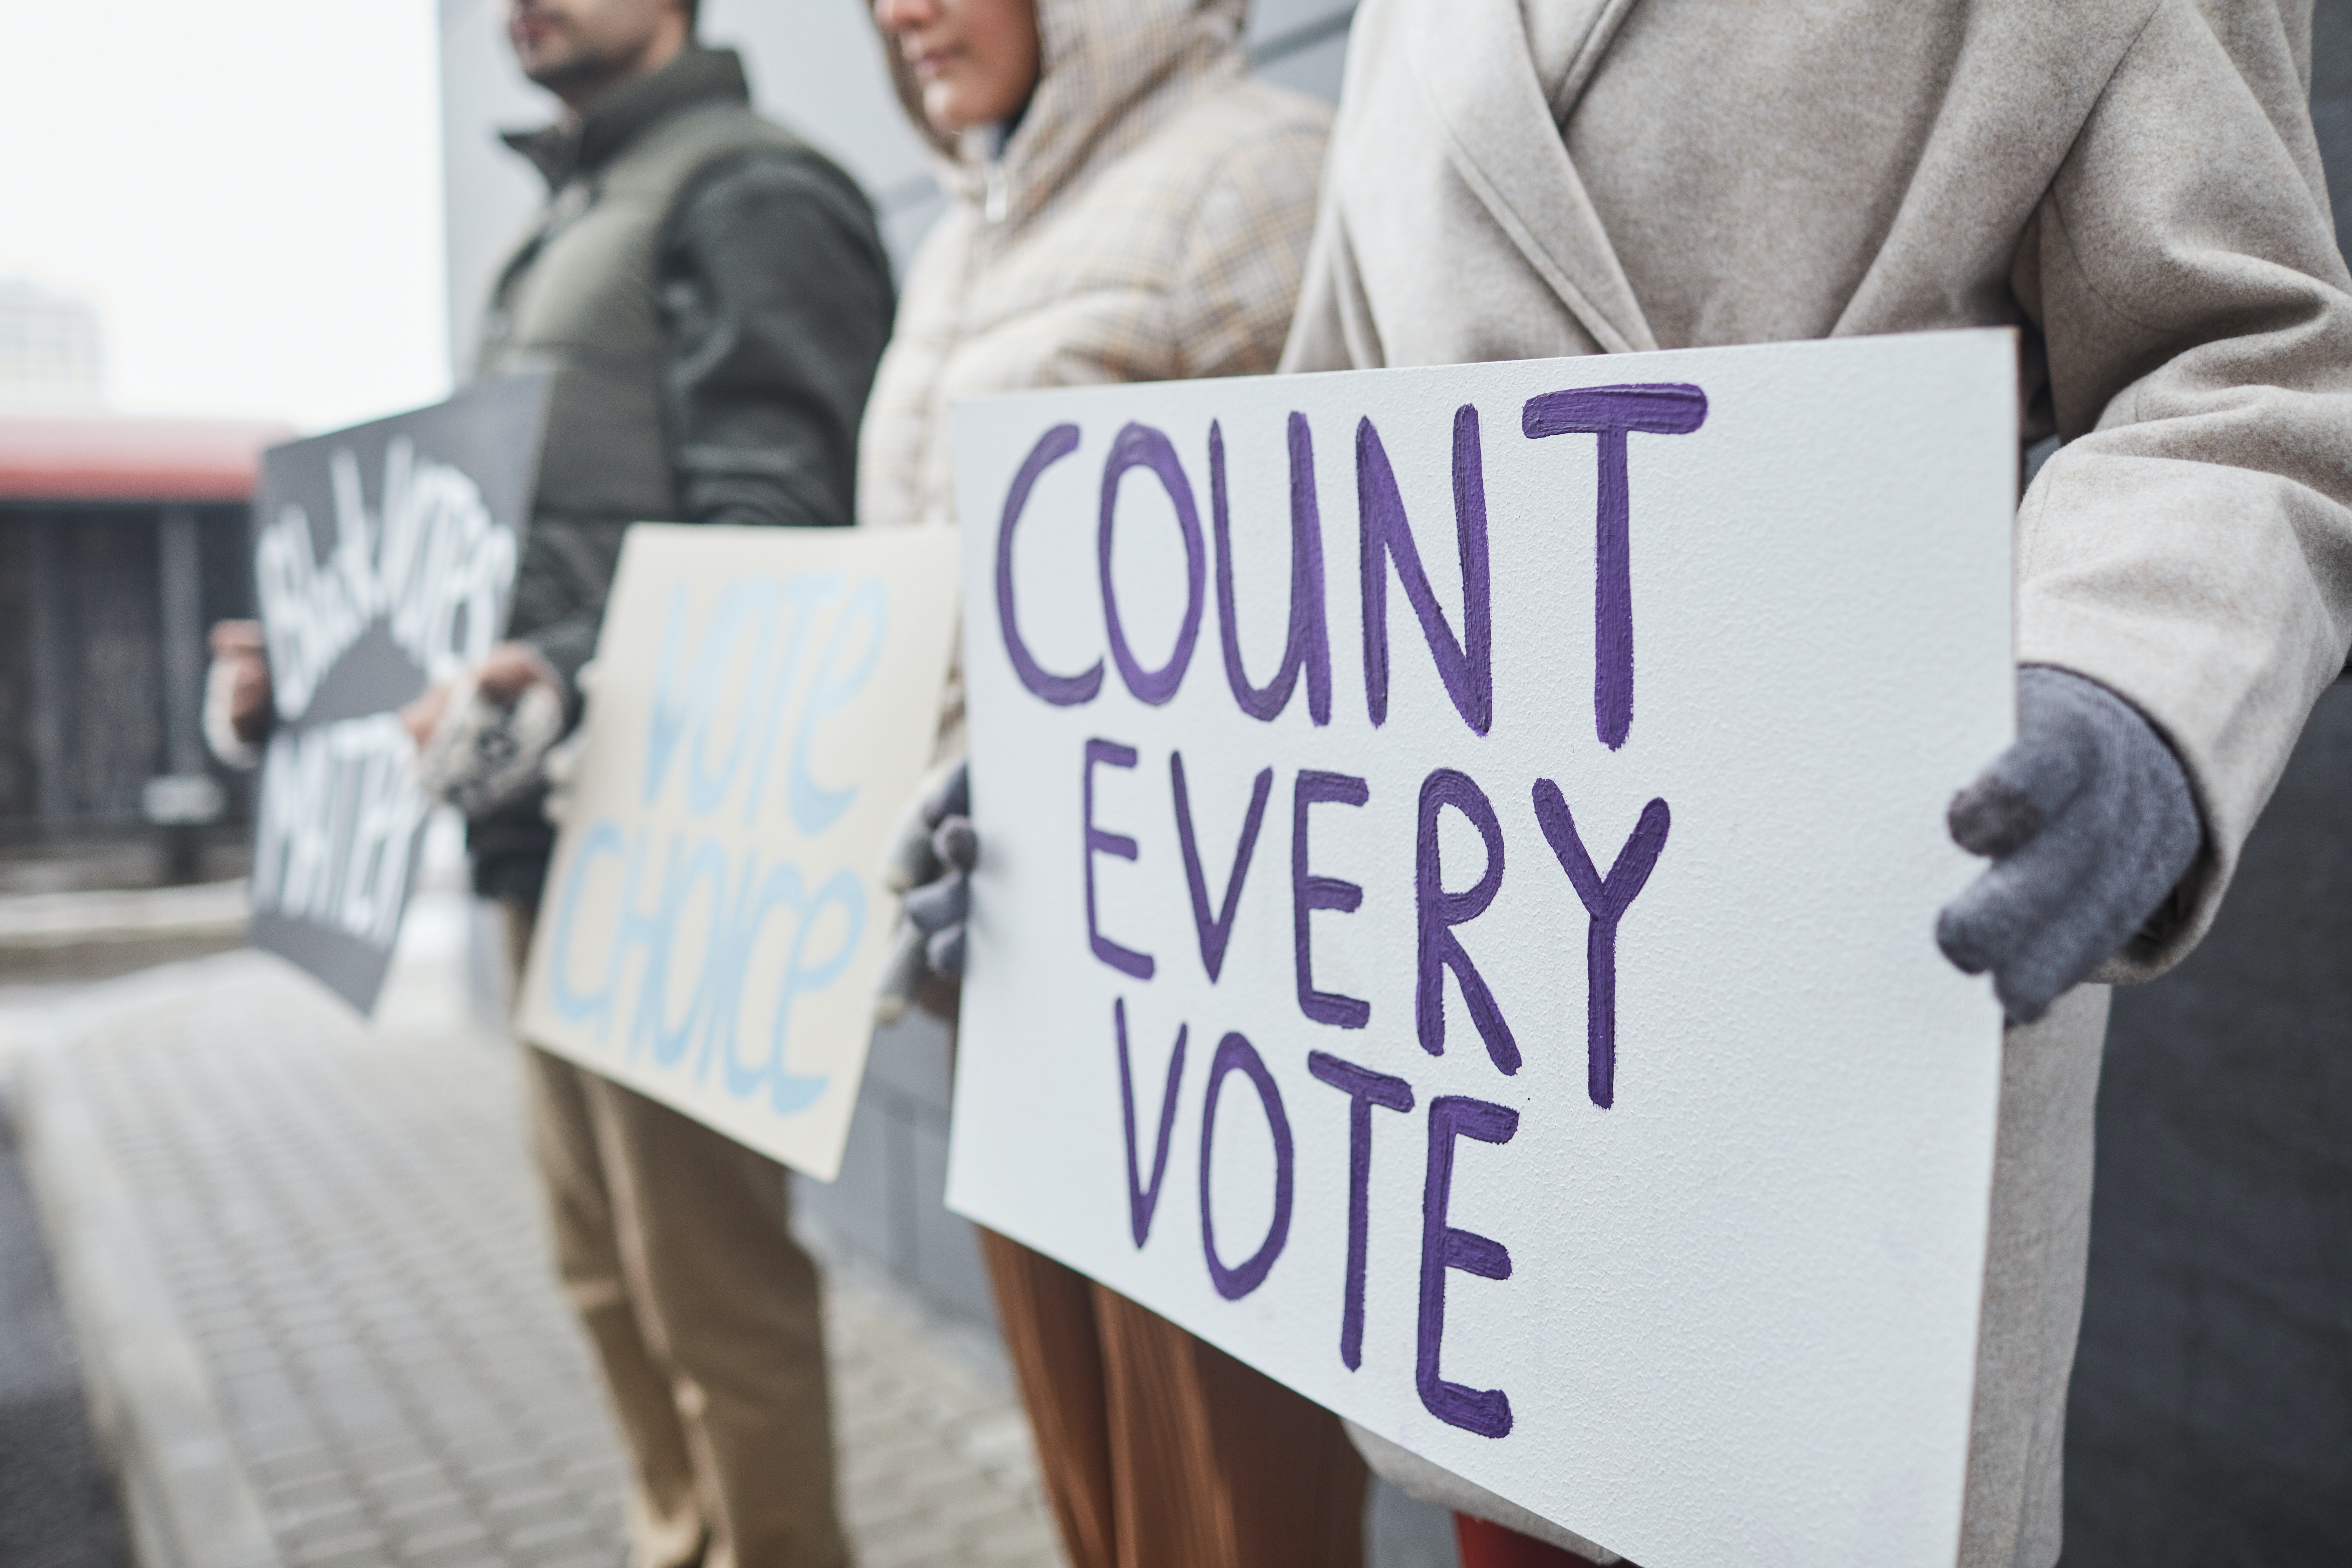 Black VOTES
MATTER
VOTE
CHOICE
COUNT
EVERY
VOTE